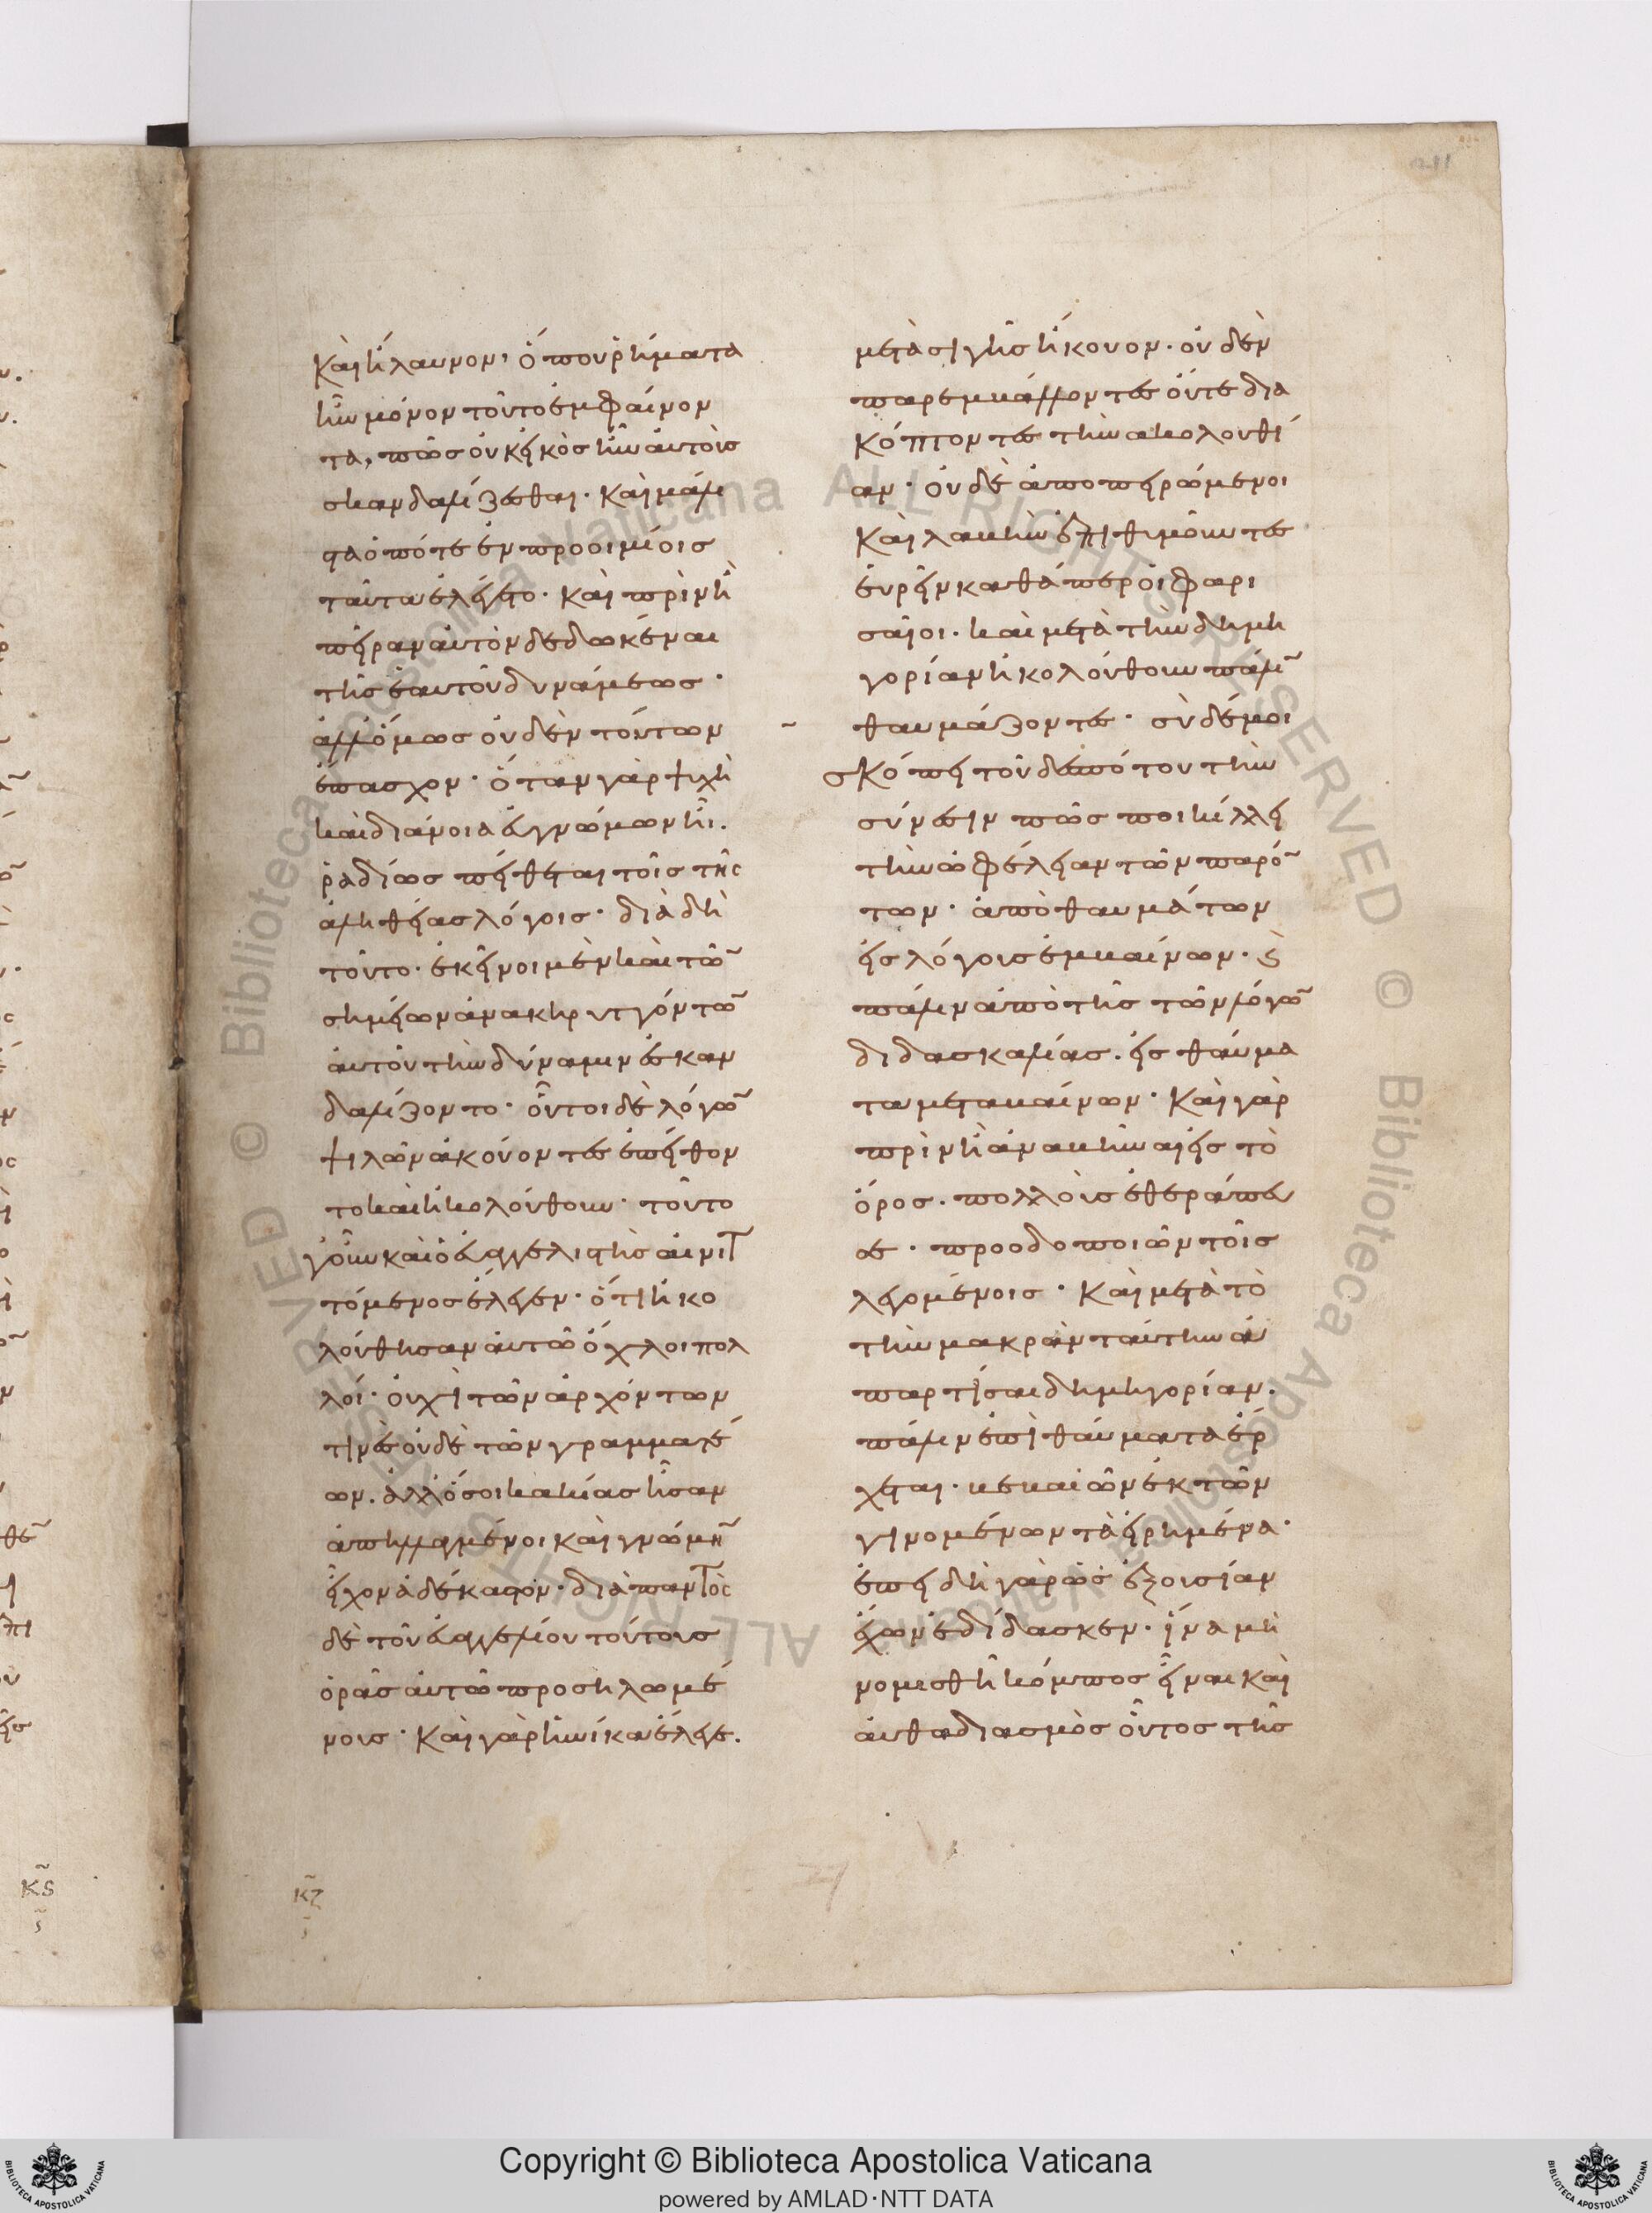 καὶ ἤλαυνον· ὅπου ῥήματα
ἦν μόνον τοῦτο ἐμφαίνον
τα, πῶς οὐκ εἰκὸς ἦν αὐτοὺς
σκανδαλίζεσθαι· καὶ μάλι
στα ὁπότε ἐν προοιμίοις
ταῦτα ἐλέγετο· καὶ πρὶν ἢ
πεῖραν αὐτὸν δεδωκέναι
τῆς ἑαυτοῦ δυνάμεως·
ἀλλ' ὅμως οὐδὲν τούτων
ἔπασχον· ὅταν γὰρ ψυχὴ
καὶ διάνοια εὐγνώμων ἦι.
ῥαδίως πείθεται τοῖς τῆς
ἀληθείας λόγοις· διὰ δὴ
τοῦτο· ἐκεῖνοι μὲν καὶ τῶ̅
σημείων ἀνακηρυττόντω̅
αὐτοῦ τὴν δύναμιν ἐσκαν
δαλίζοντο· οὗτοι δὲ λόγω̅
ψιλῶν ἀκούοντες ἐπείθον
το καὶ ἠκολούθουν· τοῦτο
γοῦν καὶ ὁ εὐαγγελιστὴς αἰνιτ
τόμενος ἔλεγεν· ὅτι ἠκο
λούθησαν αὐτῶ ὄχλοι πολ
λοί· οὐχὶ τῶν ἀρχόντων
τινὲς οὐδὲ τῶν γραμματέ
ων. ἀλλ' ὅσοι κακίας ἦσαν
ἀπηλλαγμένοι καὶ γνώμη̅
εἶχον ἀδέκαστον· διὰ παντὸς
δὲ τοῦ εὐαγγελίου τούτους
ὁρᾶς αὐτῶ προσηλωμέ
νους· καὶ γὰρ ἡνίκα ἔλεγε.
μετὰ σιγῆς ἤκουον· οὐδὲν
παρεμβάλλοντες οὔτε δια
κόπτοντες τὴν ἀκολουθί
αν· οὐδὲ ἀποπειρώμενοι
καὶ λαβὴν ἐπιθυμοῦντες
εὑρεῖν καθάπερ οἱ φαρι
σαῖοι· καὶ μετὰ τὴν δημη
γορίαν ἠκολούθουν πάλι̅
θαυμάζοντες· σὺ δέ μοι
σκόπει τοῦ δεσπότου τὴν
σύνεσιν πῶς ποικίλλει
τὴν ὠφέλειαν τῶν παρό̅
των· ἀπὸ θαυμάτων
εἰς λόγους ἐμβαίνων· ϛ̀
πάλιν ἀπὸ τῆς τῶν λόγω̅
διδασκαλίας. εἰς θαύμα
τα μεταβαίνων· καὶ γὰρ
πρὶν ἢ ἀναβῆναι εἰς τὸ
ὄρος. πολλοὺς ἐθεράπευ
σε· προοδοποιῶν τοῖς
λεγομένοις· καὶ μετὰ τὸ
τὴν μακρὰν ταύτην ἀ
παρτίσαι δημηγορίαν.
πάλιν ἐπὶ θαύματα ἔρ
χεται· βεβαιῶν ἐκ τῶν
γινομένων τὰ εἰρημένα·
ἐπειδὴ γὰρ ὡς ἐξουσίαν
ἔχων ἐδίδασκεν· ἵνα μὴ
νομισθῆ κόμπος εἶναι καὶ
αὐθαδιασμὸς οὗτος τῆς
κζ
κϛ
Copyright © Biblioteca Apostolica Vaticana
powered by AMLAD·NTT DATA